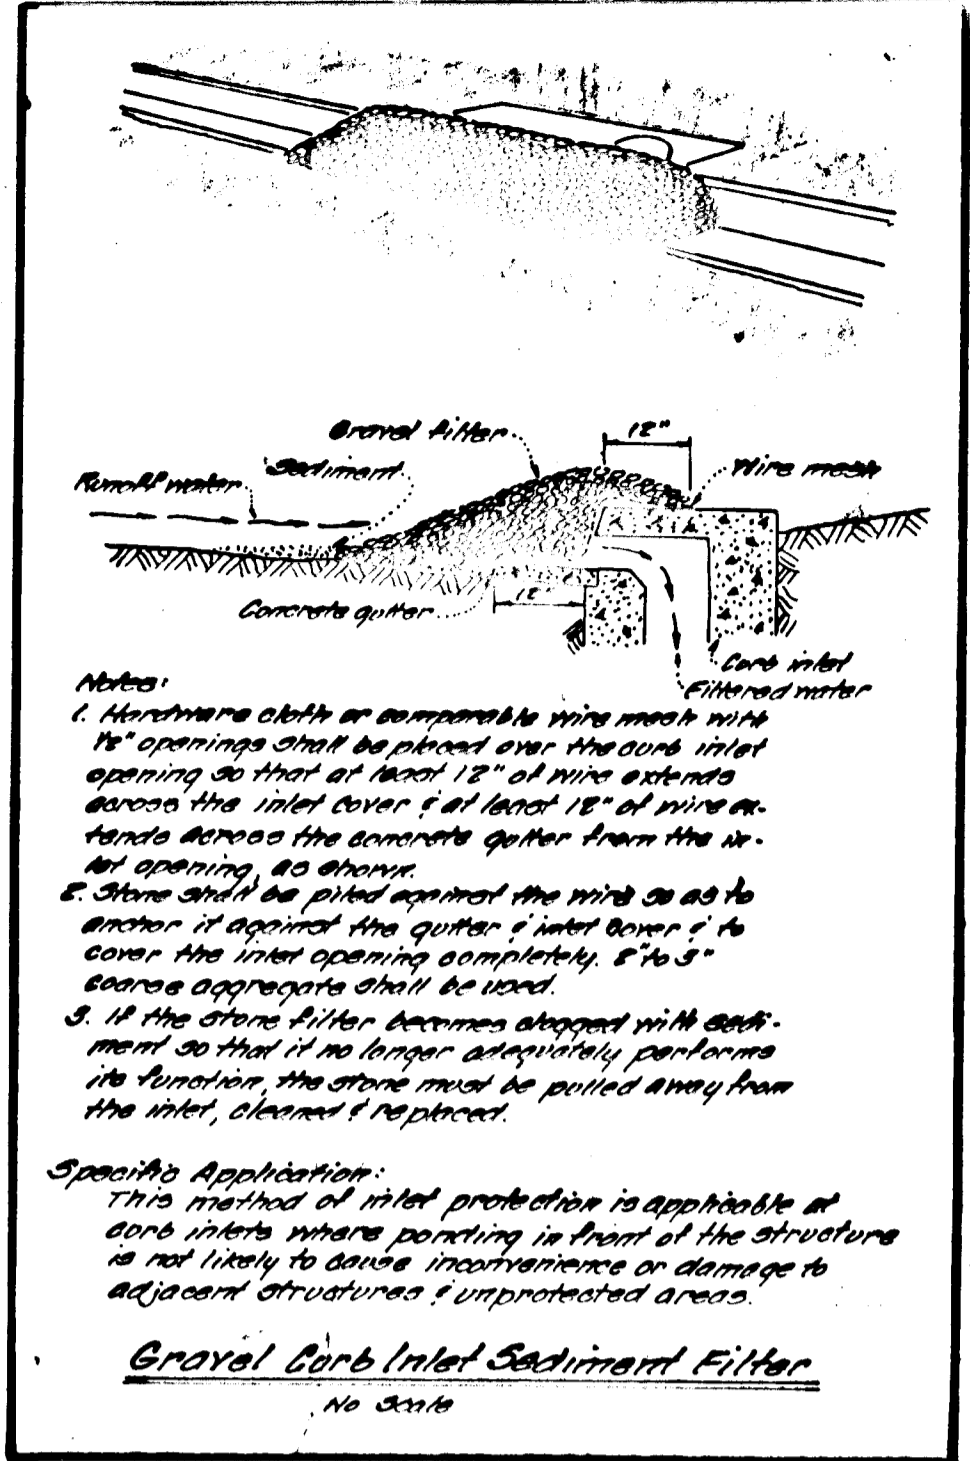 Gravel filter
12"
Sediment
Wire mesh
Runoff water
Concrete gutter
12"
Curb inlet
Filtered water
Notes:
1. Hardware cloth or comparable wire mesh with
½" openings shall be placed over the curb inlet
opening so that at least 12" of wire extends
across the inlet cover & at least 12" of wire ex-
tends across the concrete gutter from the in-
let opening, as shown.
2. Stone shall be piled against the wire so as to
anchor it against the gutter & inlet cover & to
cover the inlet opening completely. 2" to 3"
coarse aggregate shall be used.
3. If the stone filter becomes clogged with sedi-
ment so that it no longer adequately performs
its function, the stone must be pulled away from
the inlet, cleaned & replaced.
Specific Application:
This method of inlet protection is applicable at
curb inlets where ponding in front of the structure
is not likely to cause inconvenience or damage to
adjacent structures & unprotected areas.
Gravel Curb Inlet Sediment Filter
No Scale